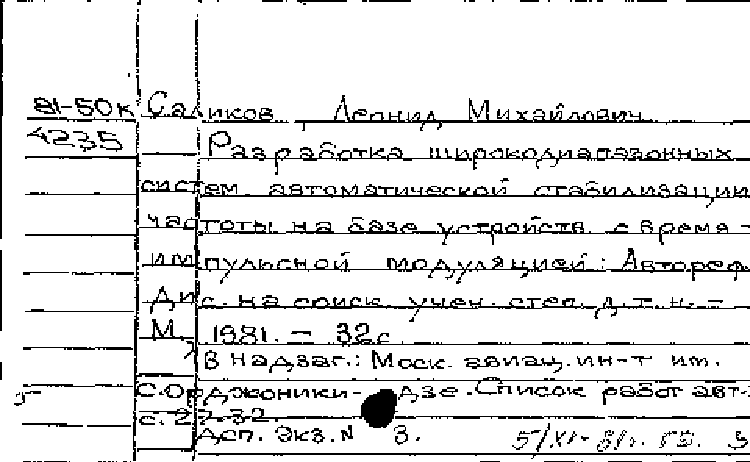 81-50к Саликов Леонид Михайлович
4235 Разработка широкодиапазонных
систем автоматической стабилизации
частоты на базе устройств с время-
импульсной модуляцией: Автореф.
Дис. на соиск. учен. степ. д.т.н. -
М., 1981. - 32с
В надзаг.: Моск. авиац. ин-т им.
С. Орджоники-дзе. Список работ авт.:
с. 27-32.
Асп. Экз. N 3.